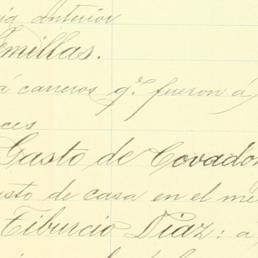 ia anterior
emillas.
á carreros q.e fueron á
ces
Gasto de Covadon
usto de casa en el me
Tiburcio Diaz: a